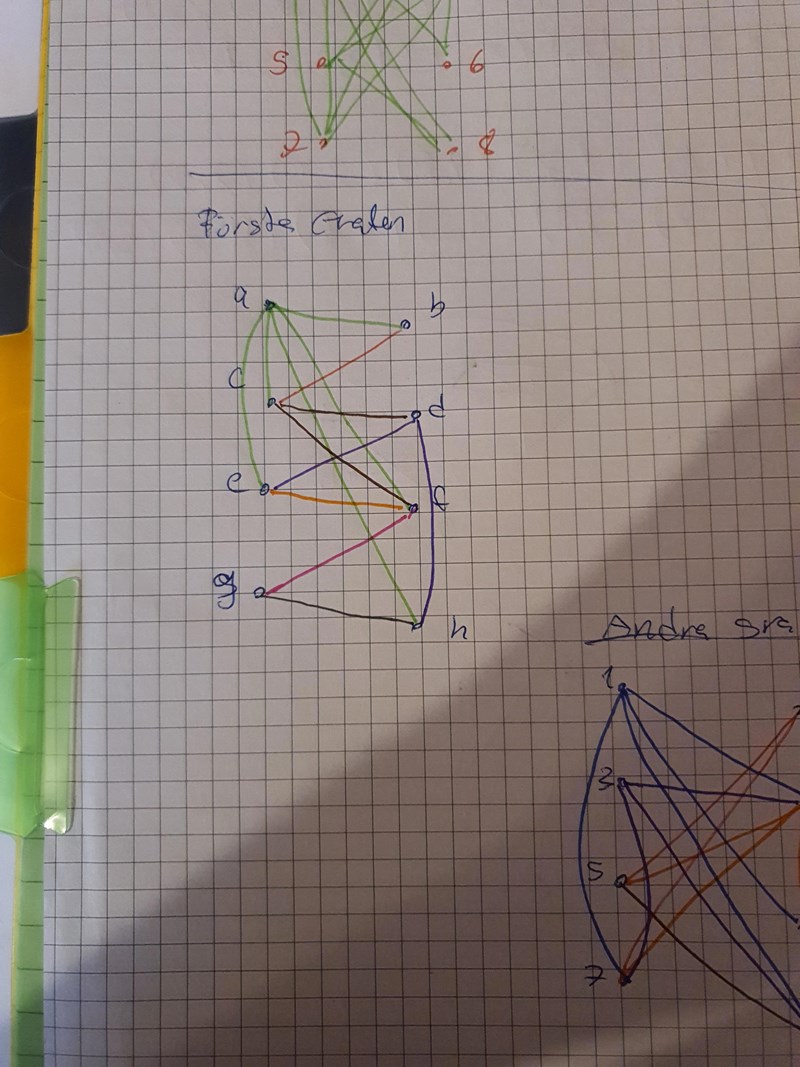 5 6
2 8
Första Grafen
a b
c
d
e f
g
h
Andra Gra
1
3
5
7